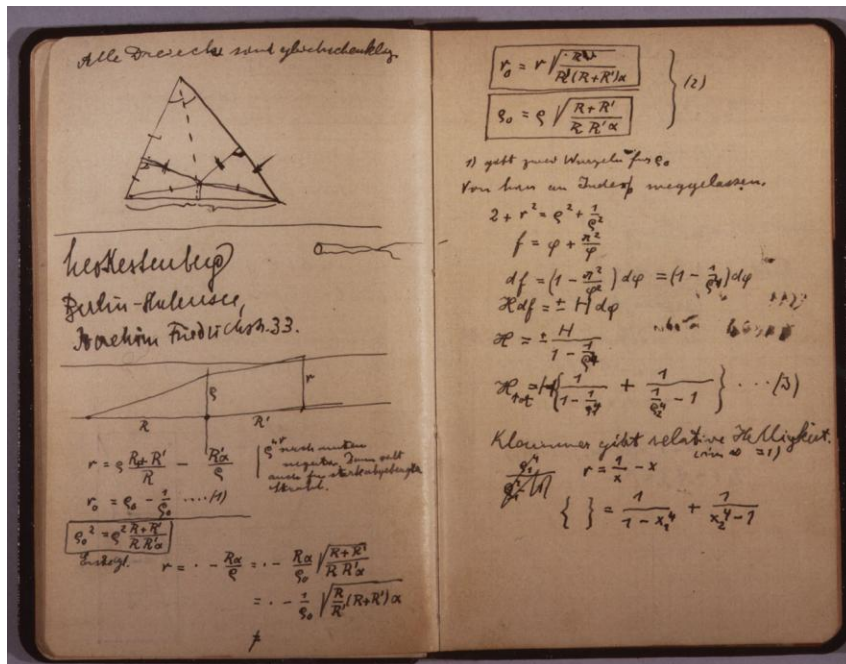 Alle Dreiecke sind gleichschenklig.
Leo Kestenberg
Berlin-Halensee,
Joachim Friedrichstr. 33.
ρ
r
R
R'
r = ρ (R+R')/R − R'α/ρ
ρ nach unten
negativ. Dann gilt
auch für stark abgebeugten
Strahl.
r₀ = ρ₀ − 1/ρ₀ ....(1)
ρ₀² = ρ² (R+R')/(R R'α)
r = · − Rα/ρ = · − Rα/ρ₀ √((R+R')/(R R'α))
= · − 1/ρ₀ √(R/R' (R+R')α)
r₀ = r √(R/(R'(R+R')α))
ρ₀ = ρ √((R+R')/(R R'α))
} (2)
1) gibt zwei Wurzeln für ρ₀
Von hier an Index weggelassen.
2 + r² = ρ² + 1/ρ²
f = φ + π²/φ
df = (1 − π²/φ²) dφ = (1 − 1/ρ⁴) dφ
H df = ± H dφ
H = ± H/(1 − 1/ρ⁴)
H tot = H { 1/(1 − 1/ρ₁⁴) + 1/(1/ρ₂⁴ − 1) } ... (3)
Klammer gibt relative Helligkeit.
r = 1/x − x
{ } = 1/(1 − x₁⁴) + 1/(x₂⁴ − 1)